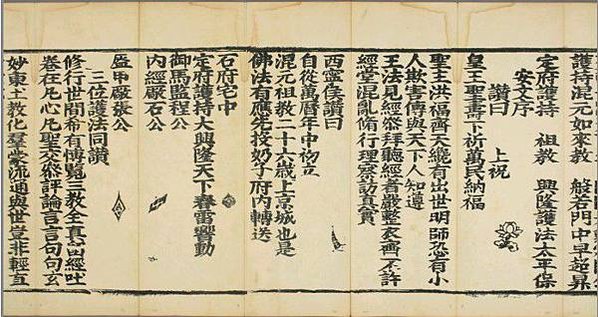 護持混元如來教 般若門中早超昇
定府護持 祖教 興隆護法太平保
安文序
讚曰 上祝
皇王聖壽下祈萬民納福
聖主洪福齊天纔有出世明師恐有小
人欺害傳與天下人知道
王法見經恭拜聽經者嚴整衣齊不許
經堂混亂脩行理察訪真實
西寧侯讚曰
自從萬曆年中初立
混元祖教二十六歲上京城也是
佛法有應先投奶子府內轉送
石府宅中
定府護持大興隆天下春雷響動
御馬監程公
內經廠石公
盔甲廠張公
三位護法同讚
修行世間希有博覽三教全真經吐
卷在凡心凡聖交參評論言言句句玄
妙東土教化羣蒙流通與世豈非輕